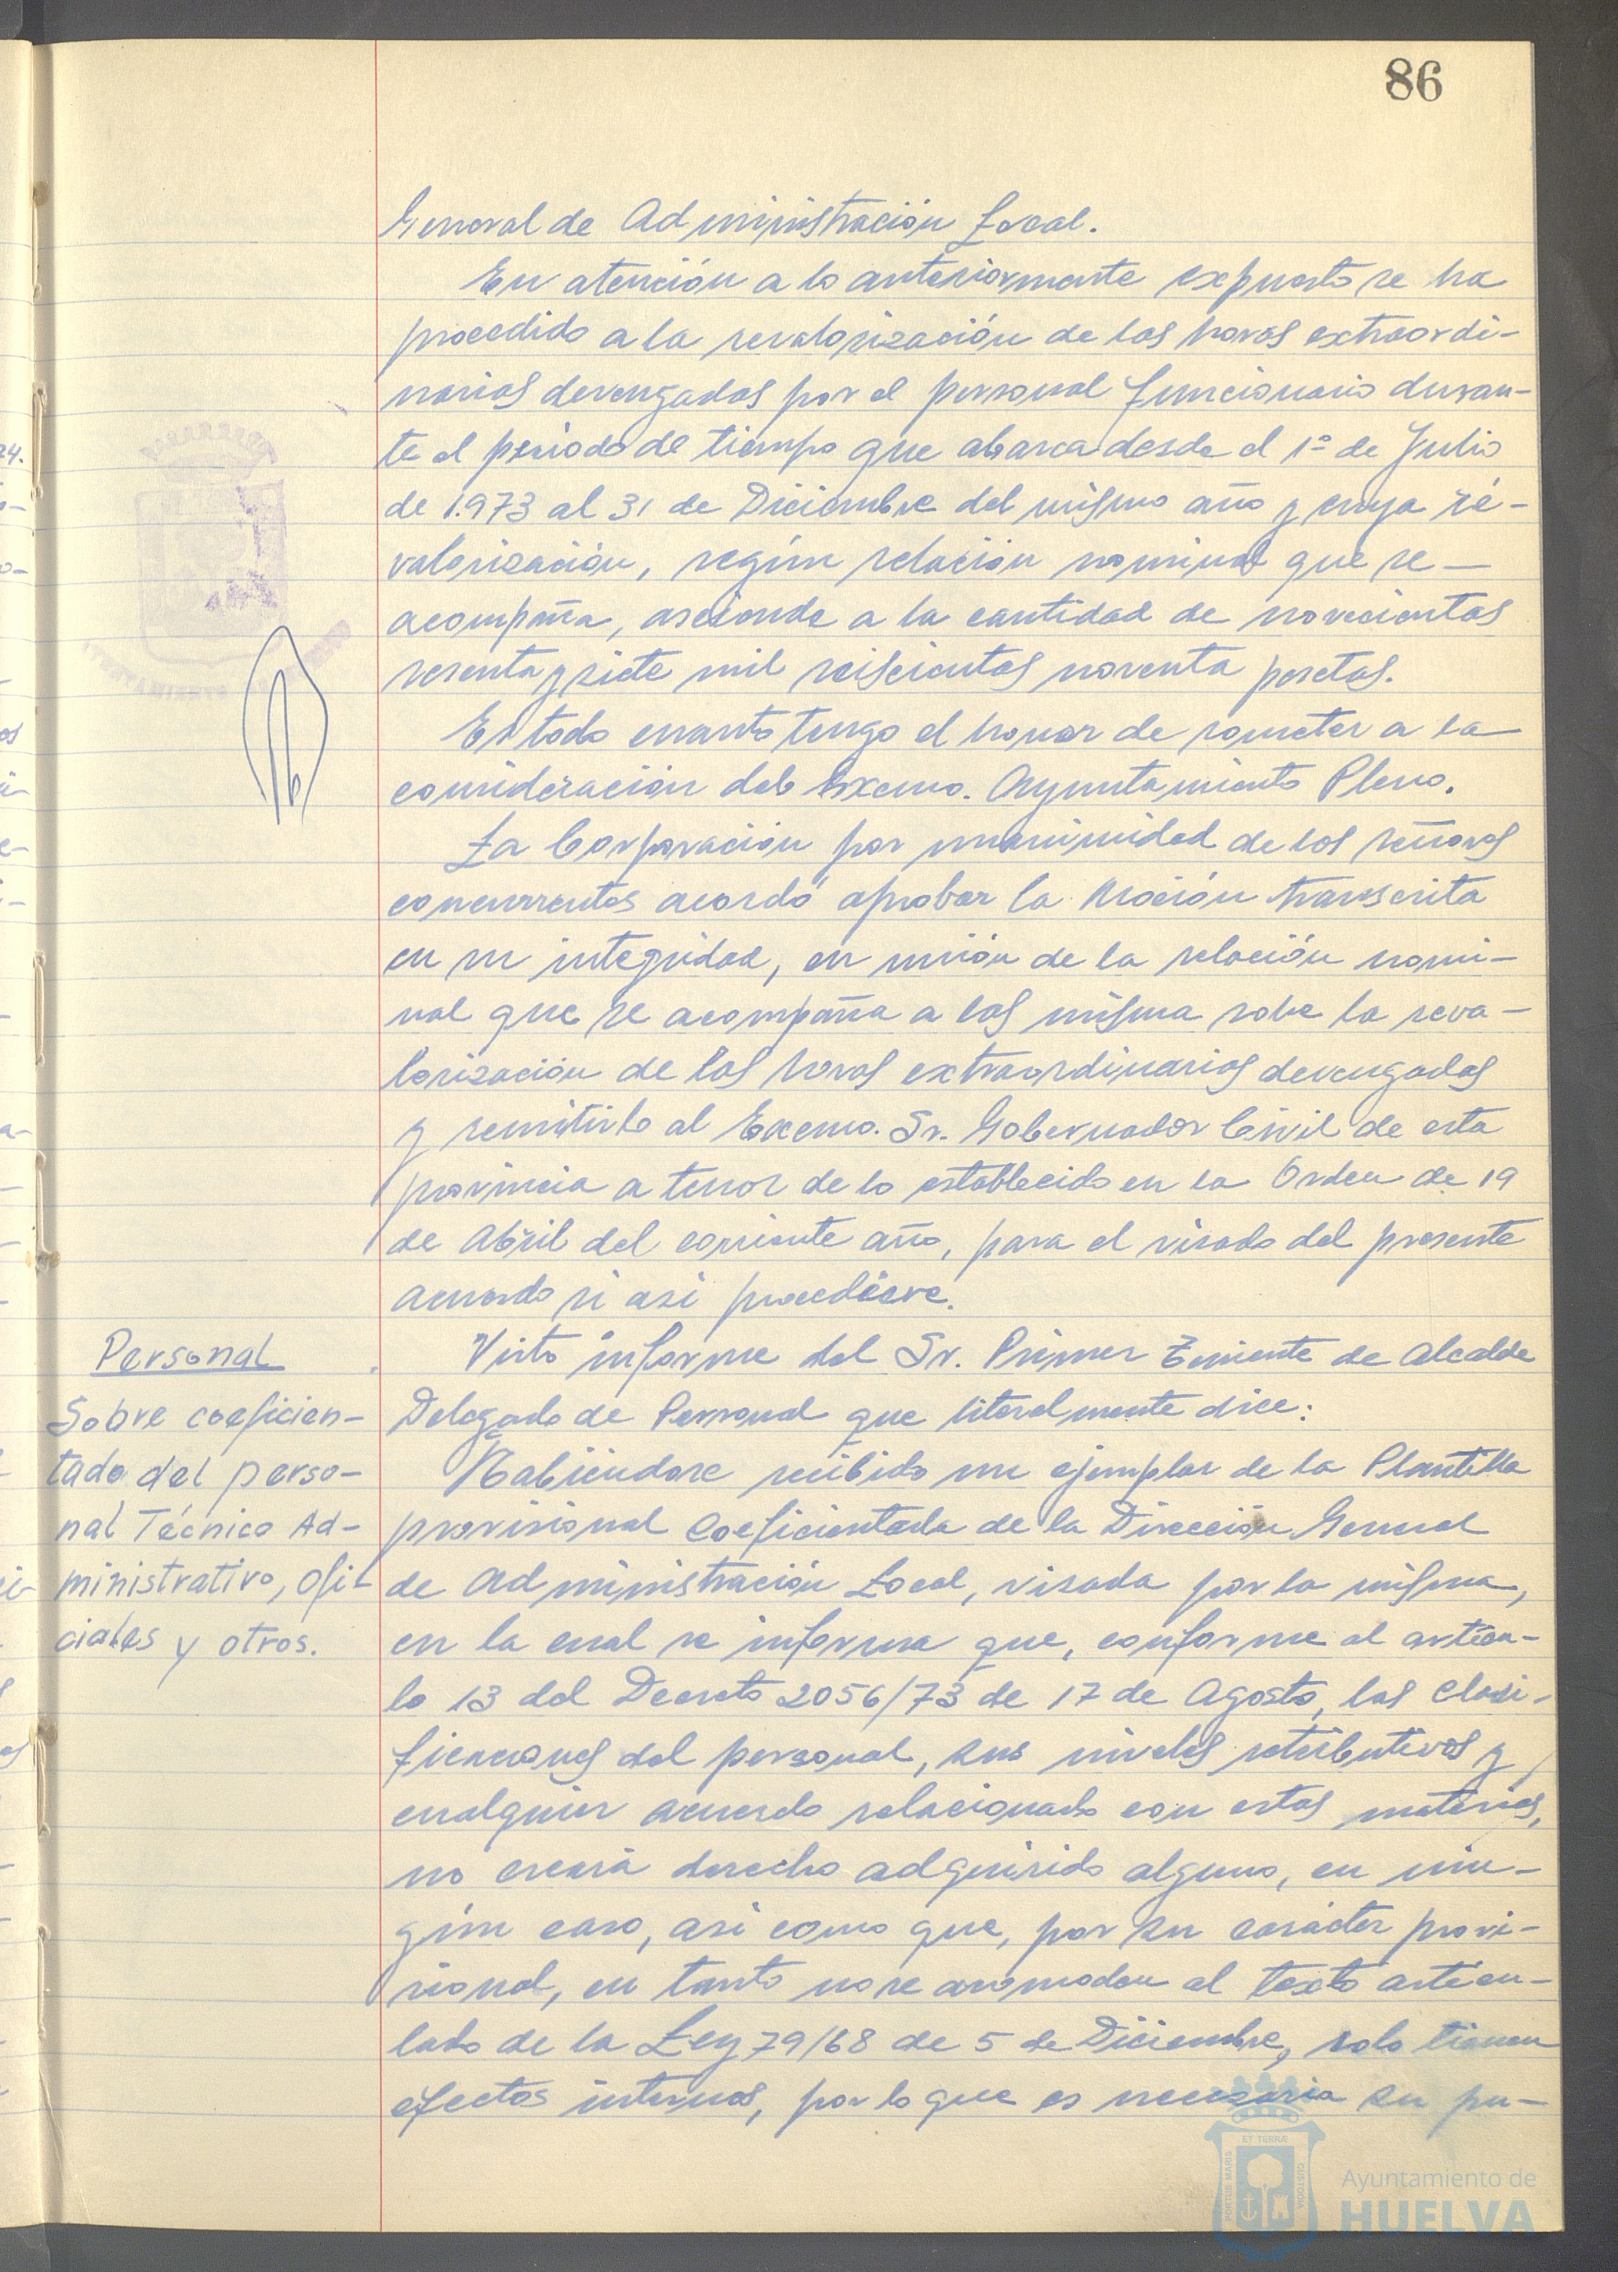 86
General de Administración Local.
En atención a lo anteriormente expuesto se ha
procedido a la revalorización de las horas extraordi-
narias devengadas por el personal funcionario duran-
te el período de tiempo que abarca desde el 1º de Julio
de 1.973 al 31 de Diciembre del mismo año y cuya re-
valorización, según relación nominal que se
acompaña, asciende a la cantidad de novecientas
sesenta y siete mil seiscientas noventa pesetas.
Es todo cuanto tengo el honor de someter a la
consideración del Excmo. Ayuntamiento Pleno.
La Corporación por unanimidad de los señores
concurrentes acordó aprobar la Moción transcrita
en su integridad, en unión de la relación nomi-
nal que se acompaña a las misma sobre la reva-
lorización de las horas extraordinarias devengadas
y remitirlo al Excmo. Sr. Gobernador Civil de esta
provincia a tenor de lo establecido en la Orden de 19
de Abril del corriente año, para el visado del presente
acuerdo si así procediere.
Personal
Sobre coeficien-
tado del perso-
nal Técnico Ad-
ministrativo, Ofi-
ciales y otros.
Visto informe del Sr. Primer Teniente de Alcalde
Delegado de Personal que literalmente dice:
Habiéndose recibido un ejemplar de la Plantilla
provisional Coeficientada de la Dirección General
de Administración Local, visada por la misma,
en la cual se informa que, conforme al artícu-
lo 13 del Decreto 2056/73 de 17 de Agosto, las clasi-
ficaciones del personal, sus niveles retributivos y
cualquier acuerdo relacionado con estas materias,
no creará derecho adquirido alguno, en nin-
gún caso, así como que, por su carácter provi-
sional, en tanto no se acomoden al texto articu-
lado de la Ley 79/68 de 5 de Diciembre, solo tienen
efectos internos, por lo que es necesaria su pu-
PORTUS MARIS
ET TERRÆ
CUSTODIA
Ayuntamiento de
HUELVA